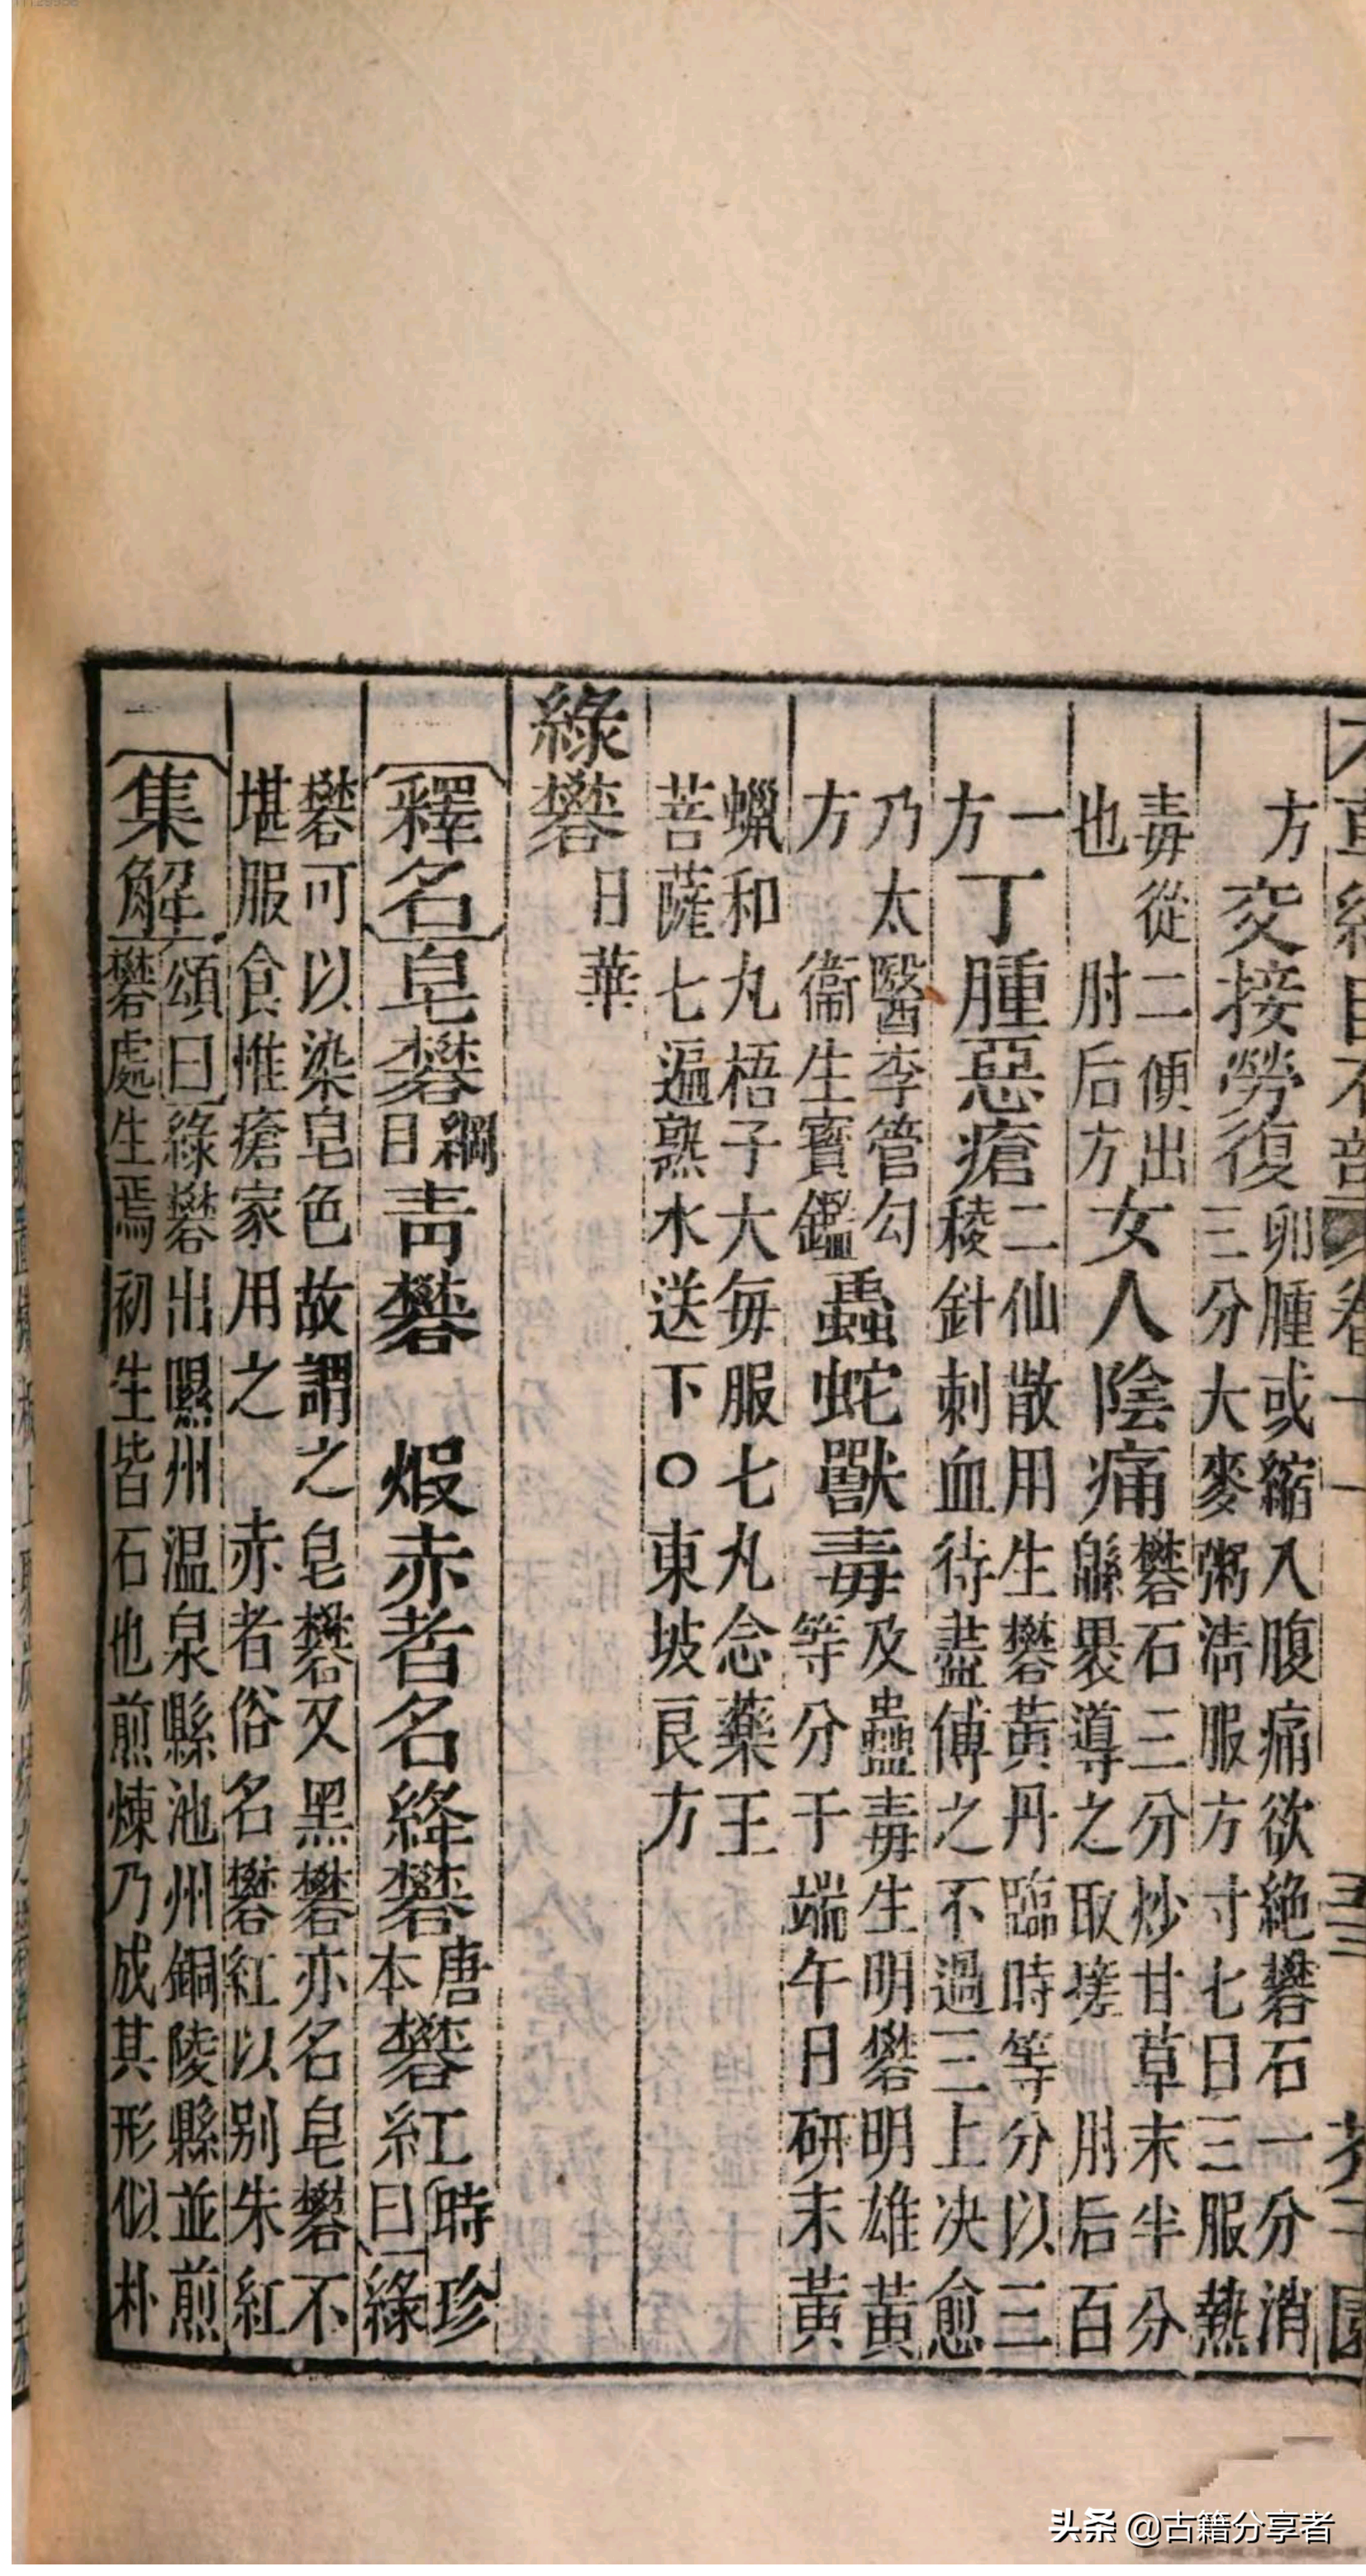 本草綱目石部 卷十一 芥子園
方 交接勞復 卵腫或縮入腹痛欲絶礬石一分消
三分大麥粥清服方寸七日三服熱
毒從二便出
也 肘后方 女人陰痛 礬石三分炒甘草末半分
緜裹導之取瘥 肘后百
一
方 丁腫惡瘡 二仙散用生礬黃丹臨時等分以三
稜針刺血待盡傅之不過三上决愈
乃太醫李管勾
方 衞生寳鑑 蟲蛇獸毒 及蠱毒生明礬明雄黃
等分于端午日研末黃
蠟和丸梧子大每服七丸念藥王
菩薩七遍熟水送下○東坡良方
綠礬 日華
釋名 皂礬 綱目 青礬 煆赤者名絳礬 唐本 礬紅 時珍曰綠
礬可以染皂色故謂之皂礬又黑礬亦名皂礬不
堪服食惟瘡家用之 赤者俗名礬紅以别朱紅
集解 頌曰綠礬出隰州温泉縣池州銅陵縣並煎
礬處生焉初生皆石也煎煉乃成其形似朴
头条 @古籍分享者